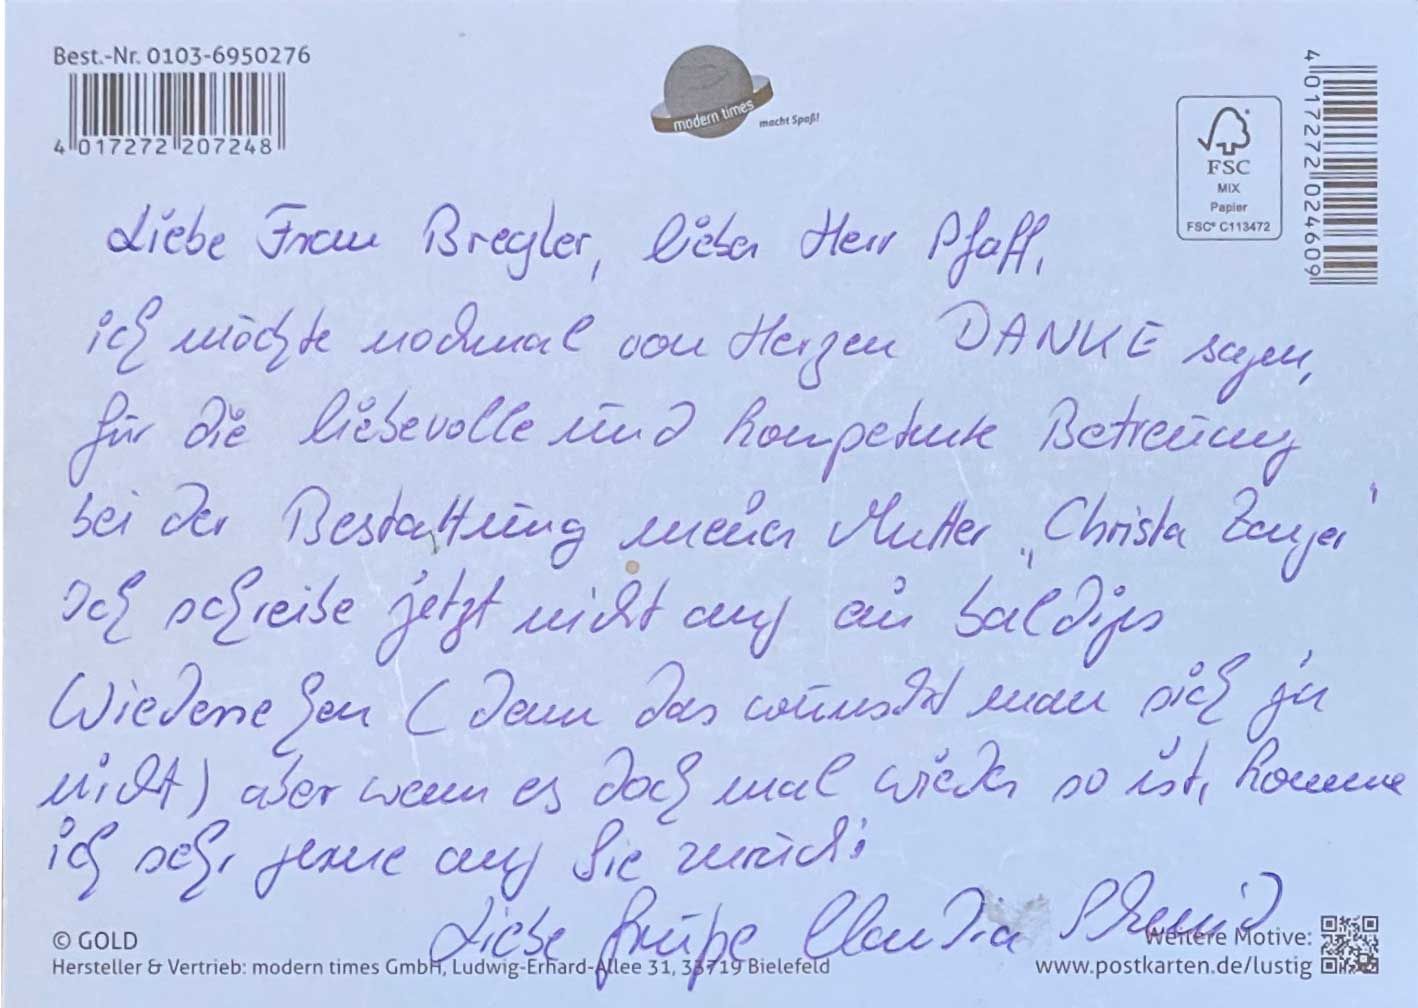 Best.-Nr. 0103-6950276
4 017272 207248
modern times
macht Spaß!
FSC
MIX
Papier
FSC® C113472
4 017272 024609
Liebe Frau Bregler, lieber Herr Pfaff,
ich möchte nochmal von Herzen DANKE sagen,
für die liebevolle und kompetente Betreuung
bei der Bestattung meiner Mutter „Christa
Ich schreibe jetzt nicht auf ein baldiges
Wiedersehen (denn das wünscht man sich ja
nicht) aber wenn es doch mal wieder so ist, komme
ich sehr gerne auf Sie zurück!
Liebe Grüße Claudia Schmid
© GOLD
Hersteller & Vertrieb: modern times GmbH, Ludwig-Erhard-Allee 31, 33719 Bielefeld
Weitere Motive:
www.postkarten.de/lustig